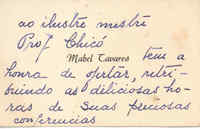 ao ilustre mestre
Prof Chicó
Mabel Tavares
tem a
honra de ofertar, retri-
buindo as deliciosas ho-
ras de suas preciosas
conferencias